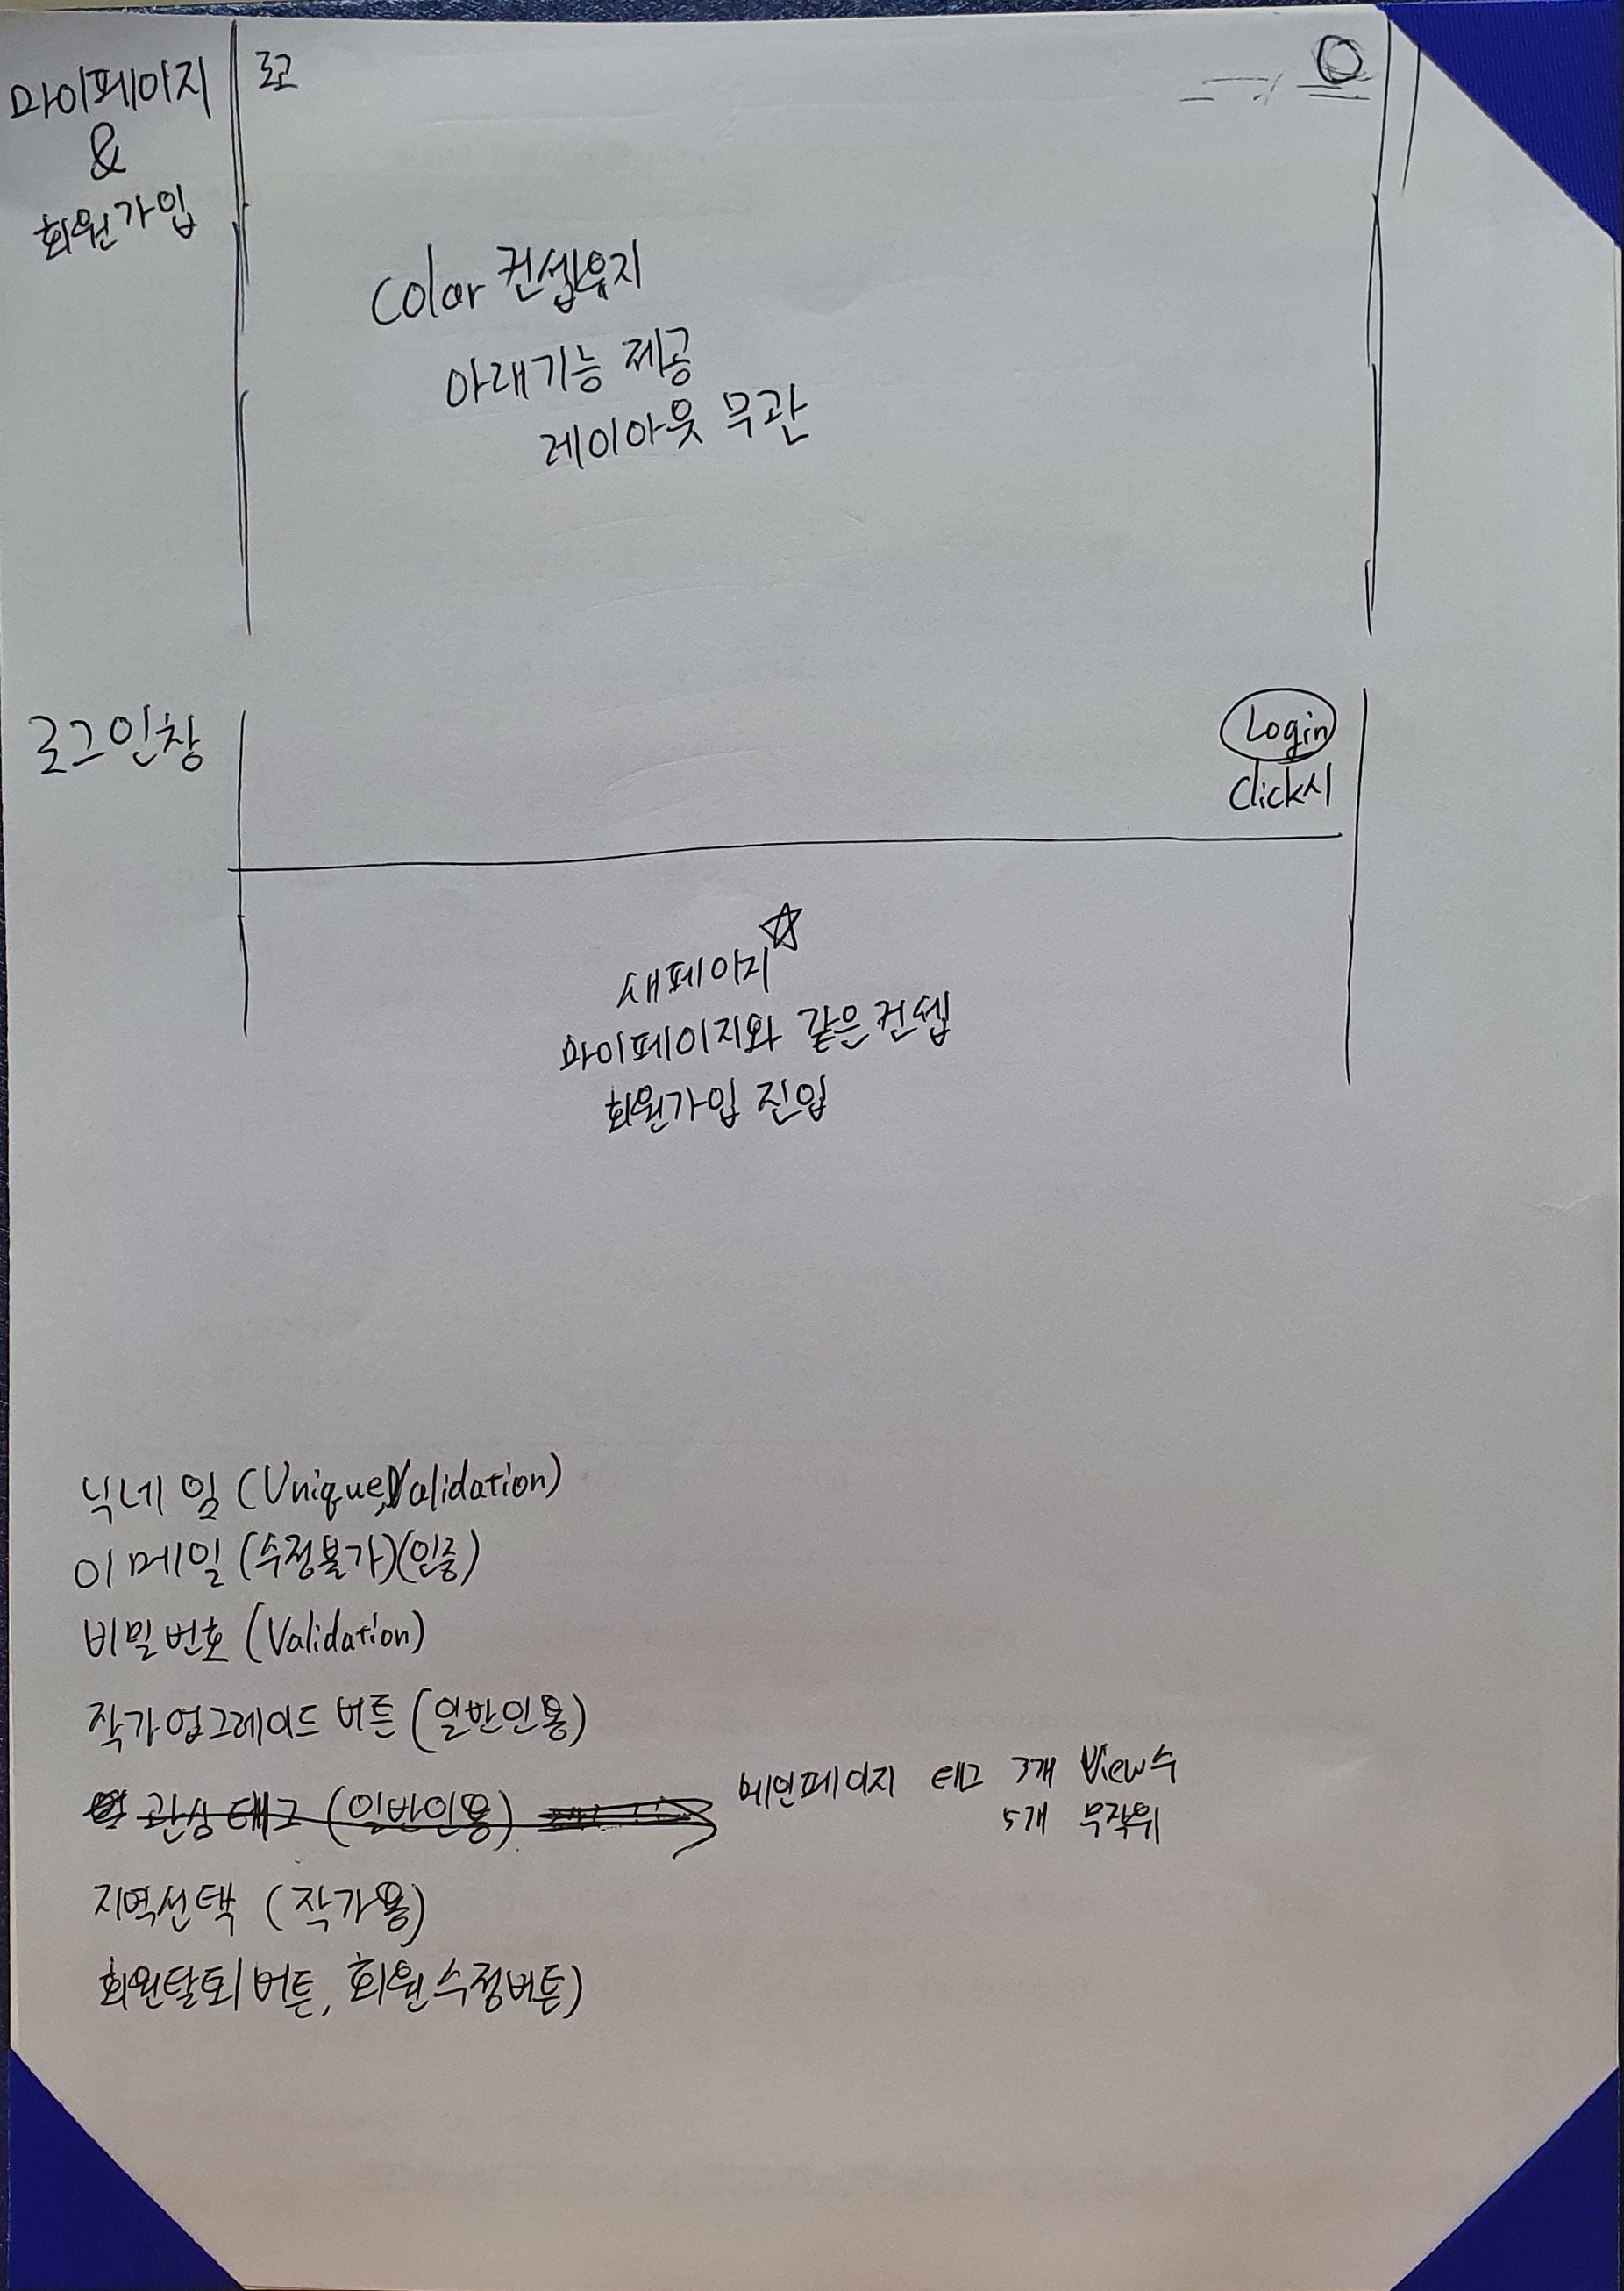 마이페이지
&
회원가입
로고
Color 컨셉유지
아래기능 제공
레이아웃 무관
로그인창
Login
Click시
새페이지
마이페이지와 같은컨셉
회원가입 진입
닉네임 (Unique, Validation)
이메일 (수정불가)(인증)
비밀번호 (Validation)
작가업그레이드 버튼 (일반인용)
관심태그 (일반인용)
메인페이지 태그 3개 View수
5개 무작위
지역선택 (작가용)
회원탈퇴버튼, 회원수정버튼)